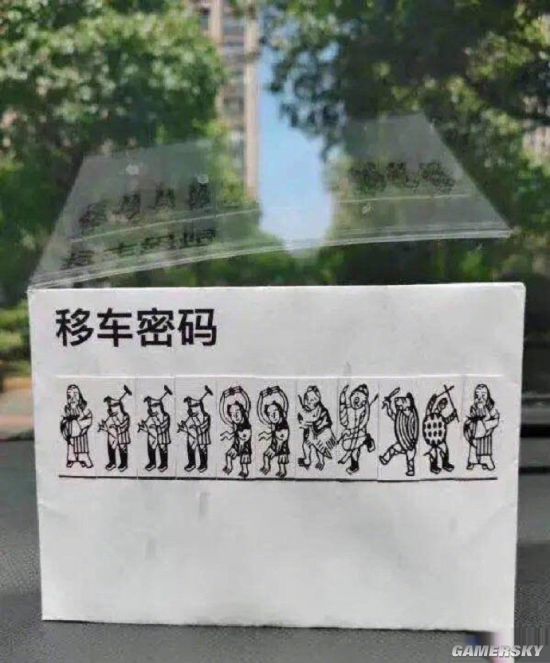 移车密码
GAMERSKY